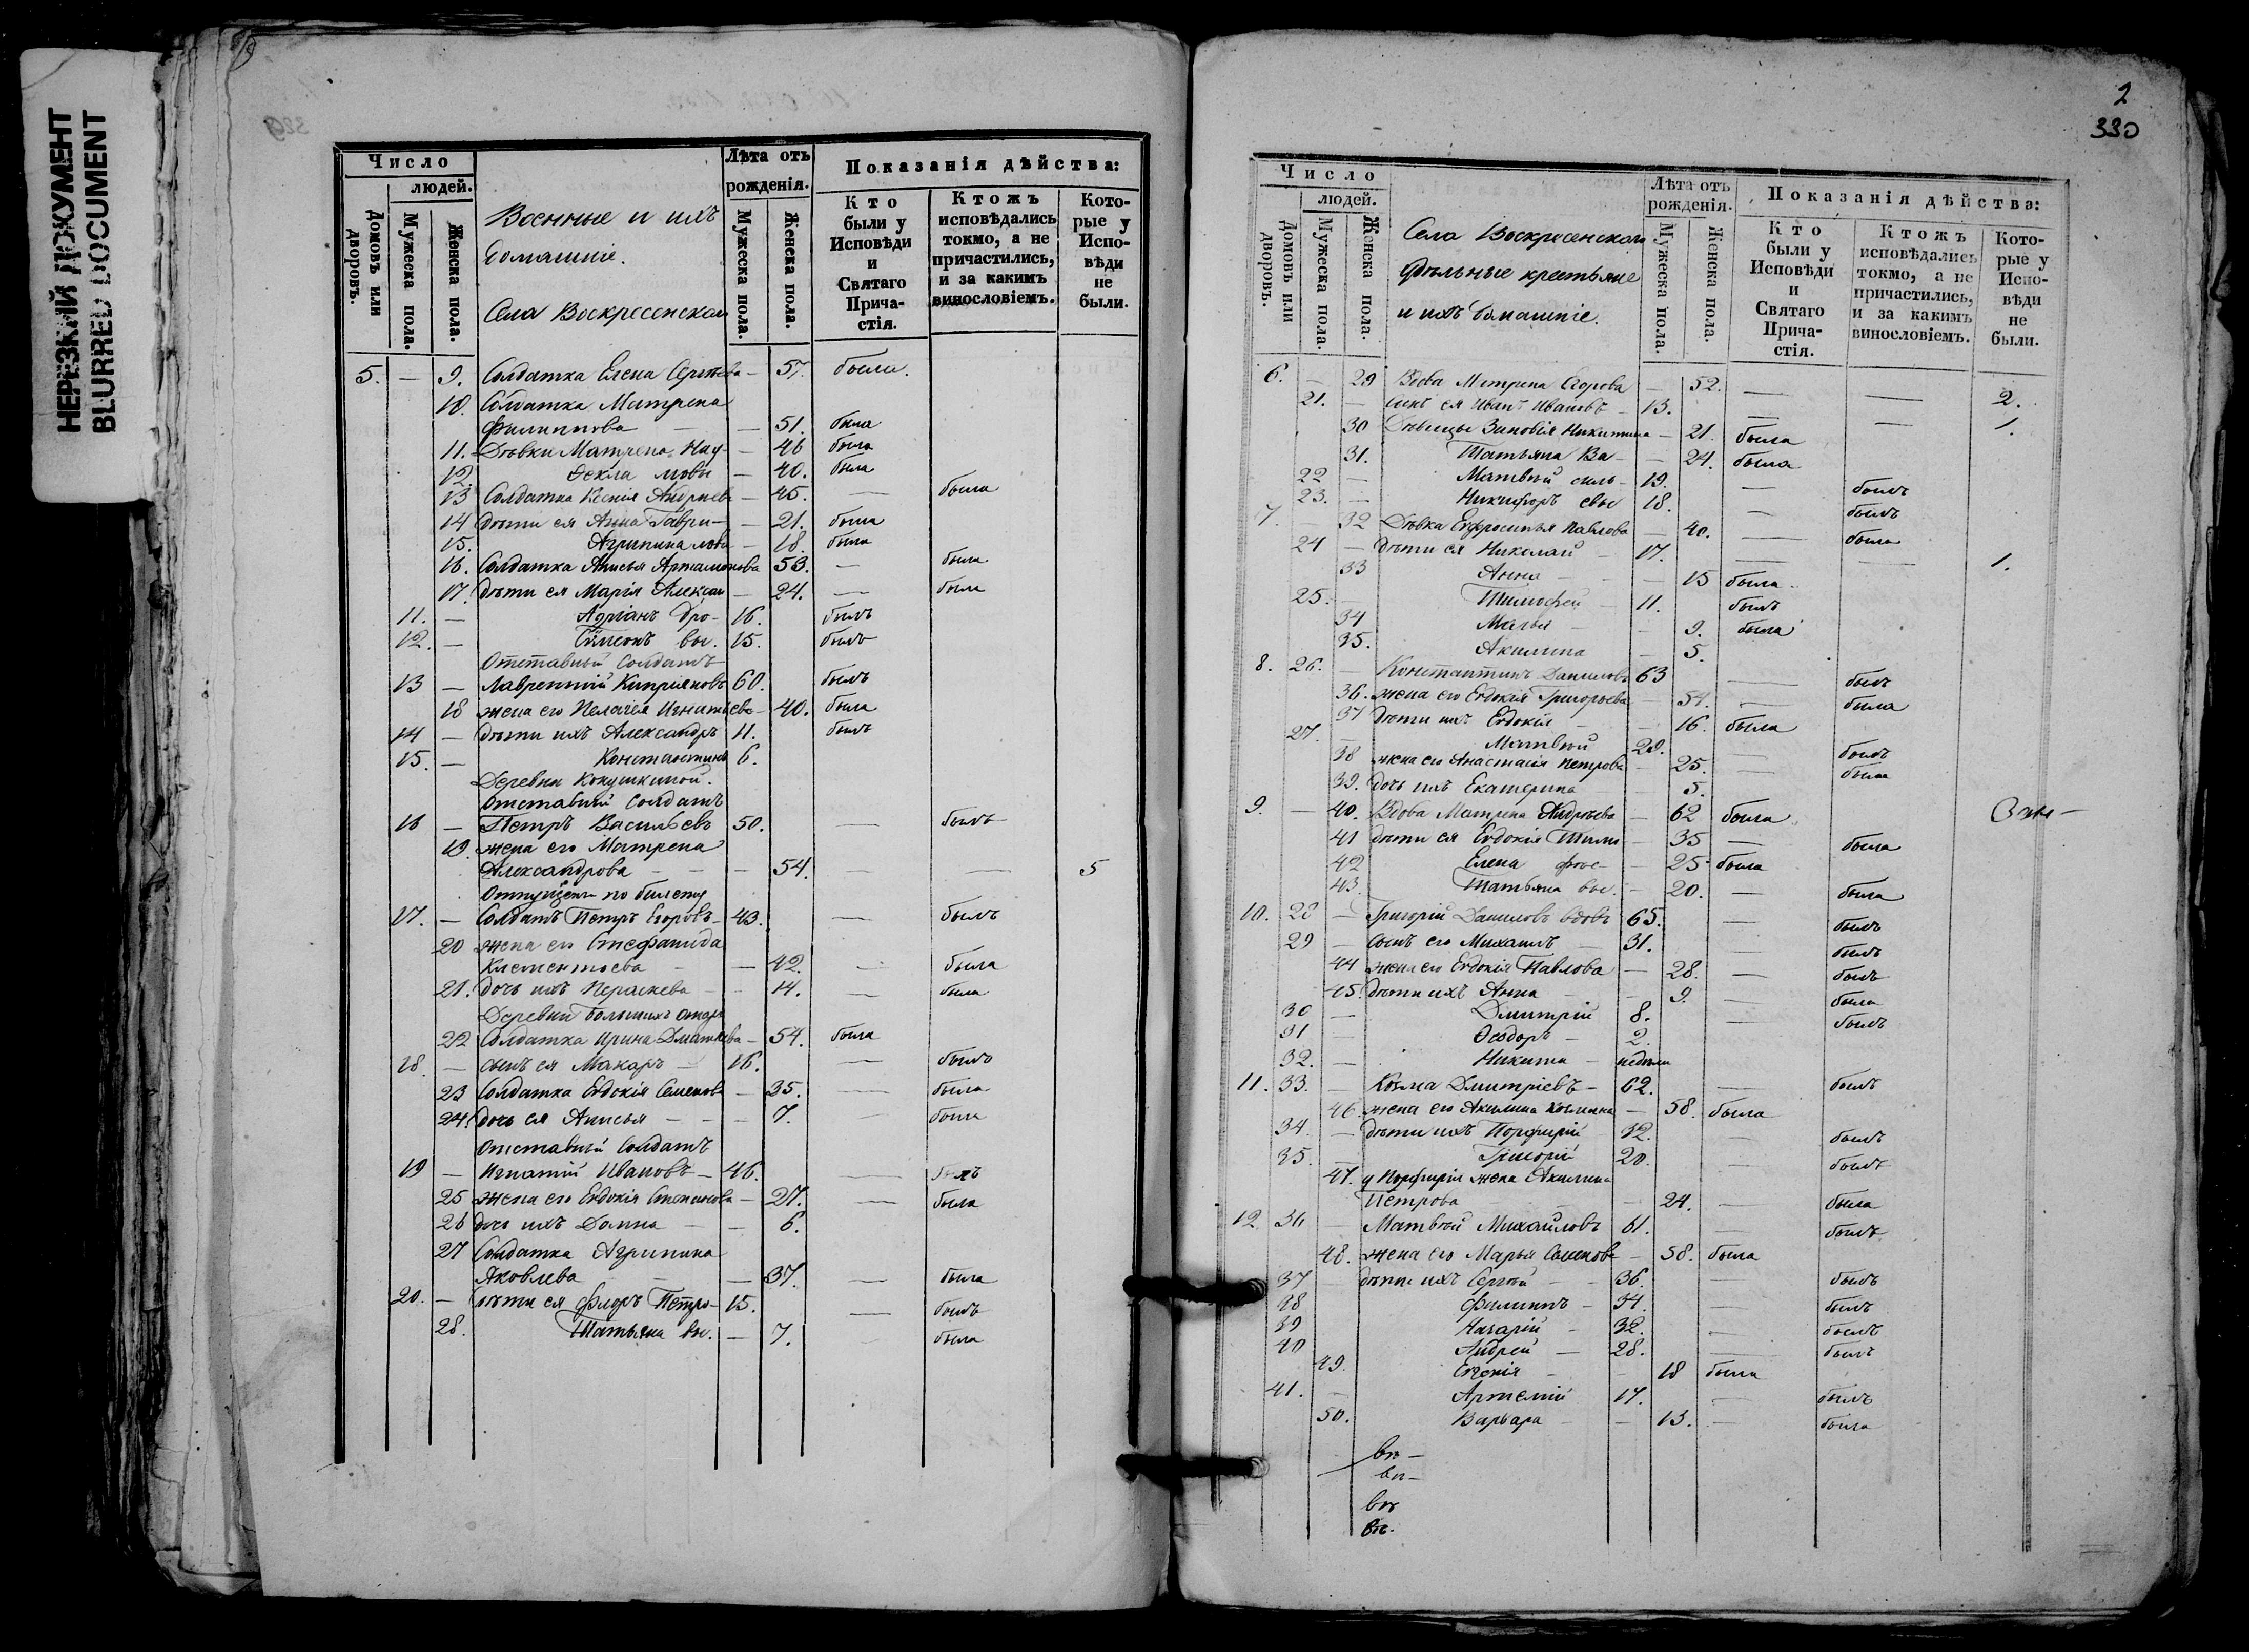 НЕРЕЗКИЙ ДОКУМЕНТ
BLURRED DOCUMENT
Число
людей.
Домовъ или дворовъ.
Мужеска пола.
Женска пола.
Военные и ихъ
домашніе.
Села Воскресенскаго
Лѣта отъ рожденія.
Мужеска пола.
Женска пола.
Показанія дѣйства:
Кто были у Исповѣди и Святаго Причастія.
Ктожъ исповѣдались токмо, а не причастились, и за какимъ винословіемъ.
Которые у Исповѣди не были.
5. — 9. Солдатка Елена Сергѣева — 57. была.
10. Солдатка Матрена
Филиппова — — 51. была
11. Дѣвки Матрена Нау- — 46 была
12. Ѳекла мовы — 40. была
13 Солдатка Ксенія Андреева — 45. — была
14 дѣти ея Анна Гаври- — 21. была
15. Агрипина ловы — 18. была
16. Солдатка Анисья Артамонова 53. — была
17. дѣти ея Марія Алексан — 24. — была
11. — Адріанъ дро- 16. былъ
12. — Сѵмеонъ вы. 15. былъ
Отставный солдатъ
13 — Лаврентій Кипріяновъ 60. былъ
18 жена его Пелагея Игнатьева — 40. была
14 — дѣти ихъ Александръ 11. былъ
15. — Константинъ 6.
Деревни Кокушкиной.
Отставный солдатъ
16 — Петръ Васильевъ 50. — былъ
19. жена его Матрена
Александрова — — — 54. — — 5
Отпущен. по билету
17. — Солдатъ Петръ Егоровъ — 43. — былъ
20 жена его Стефанида
Климентьева — — 42. — была
21. дочь ихъ Параскева — — 14. — была
Деревни Большихъ
22 Солдатка Ирина — 54. была
18. — сынъ ея Макаръ — 16. — былъ
23 Солдатка Евдокія Семенова — 35. — была
24. дочь ея Анисья — — — 7. — была
Отставный солдатъ
19 — Игнатій Ивановъ — 46. — былъ
25 жена его Евдокія Степанова — 27. — была
26 дочь ихъ Домна — — 6.
27 Солдатка Агрипина
Яковлева — — 37. — была
20. — дѣти ея Флоръ Петро- 15. — былъ
28. Татьяна вы. — 7. — была
2
330
Число
людей.
Домовъ или дворовъ.
Мужеска пола.
Женска пола.
Села Воскресенскаго
Удѣльные крестьяне
и ихъ домашніе.
Лѣта отъ рожденія.
Мужеска пола.
Женска пола.
Показанія дѣйства:
Кто были у Исповѣди и Святаго Причастія.
Ктожъ исповѣдались токмо, а не причастились, и за какимъ винословіемъ.
Которые у Исповѣди не были.
6. — 29 Вдова Матрена Егорова — 52. — — 2.
21. — сынъ ея Иванъ Ивановъ — 13. — — 1.
30 Дѣвицы Зиновія Никитина — 21. была
31. Татьяна Ва- — 24. была
22 — Матвѣй силь- 19. — былъ
23. — Никифоръ евы 18. — былъ
7. 32 Дѣвка Ефросинья Павлова — 40. — была
24 — дѣти ея Николай — 17. — — 1.
33 Анна — — 15 была
25. — Тимофей — 11. былъ
34 Марья — — 9. была
35. Акилина — 5.
8. 26. — Константинъ Даниловъ 63 — былъ
36. жена его Евдокія Григорьева — 54. — была
37 дѣти ихъ Евдокія — — 16. была
27. — Матвей 29. — былъ
38 жена его Анастасія Петрова — 25. — была
39. дочь ихъ Екатерина — 5.
9. — 40. Вдова Матрена Андреева — 62 была
41 дѣти ея Евдокія Тимо — 35 — была
42 Елена фее — 25 была
43. Татьяна вы. — 20. — была
10. 28 — Григорій Даниловъ вдовъ 65. — былъ
29 — сынъ его Михаилъ — 31. — былъ
44 жена его Евдокія Павлова — 28. — былъ
45. дѣти ихъ Анна — — 9. — была
30 — Димитрій 8. — былъ
31 — Ѳеодоръ — 2.
32. — Никита — недѣли
11. 33. — Козма Димитріевъ — 62. — былъ
46. жена его Акилина Козмина — 58. была
34. — дѣти ихъ Порфирій — 32. — былъ
35. — Григорій 20. — былъ
47. у Порфирія жена Акилина
Петрова — 24. — была
12. 36 — Матвей Михайловъ 61. — былъ
48. жена его Марья Семенова — 58. была
37 — дѣти ихъ Сергей — — 36. — былъ
38 Филиппъ — 34. — былъ
39 Назарій — 32. — былъ
40 Андрей — 28. — былъ
49. Евгенія — — 18 была
41. — Артемій 17. — былъ
50. Варвара — — 13. — была